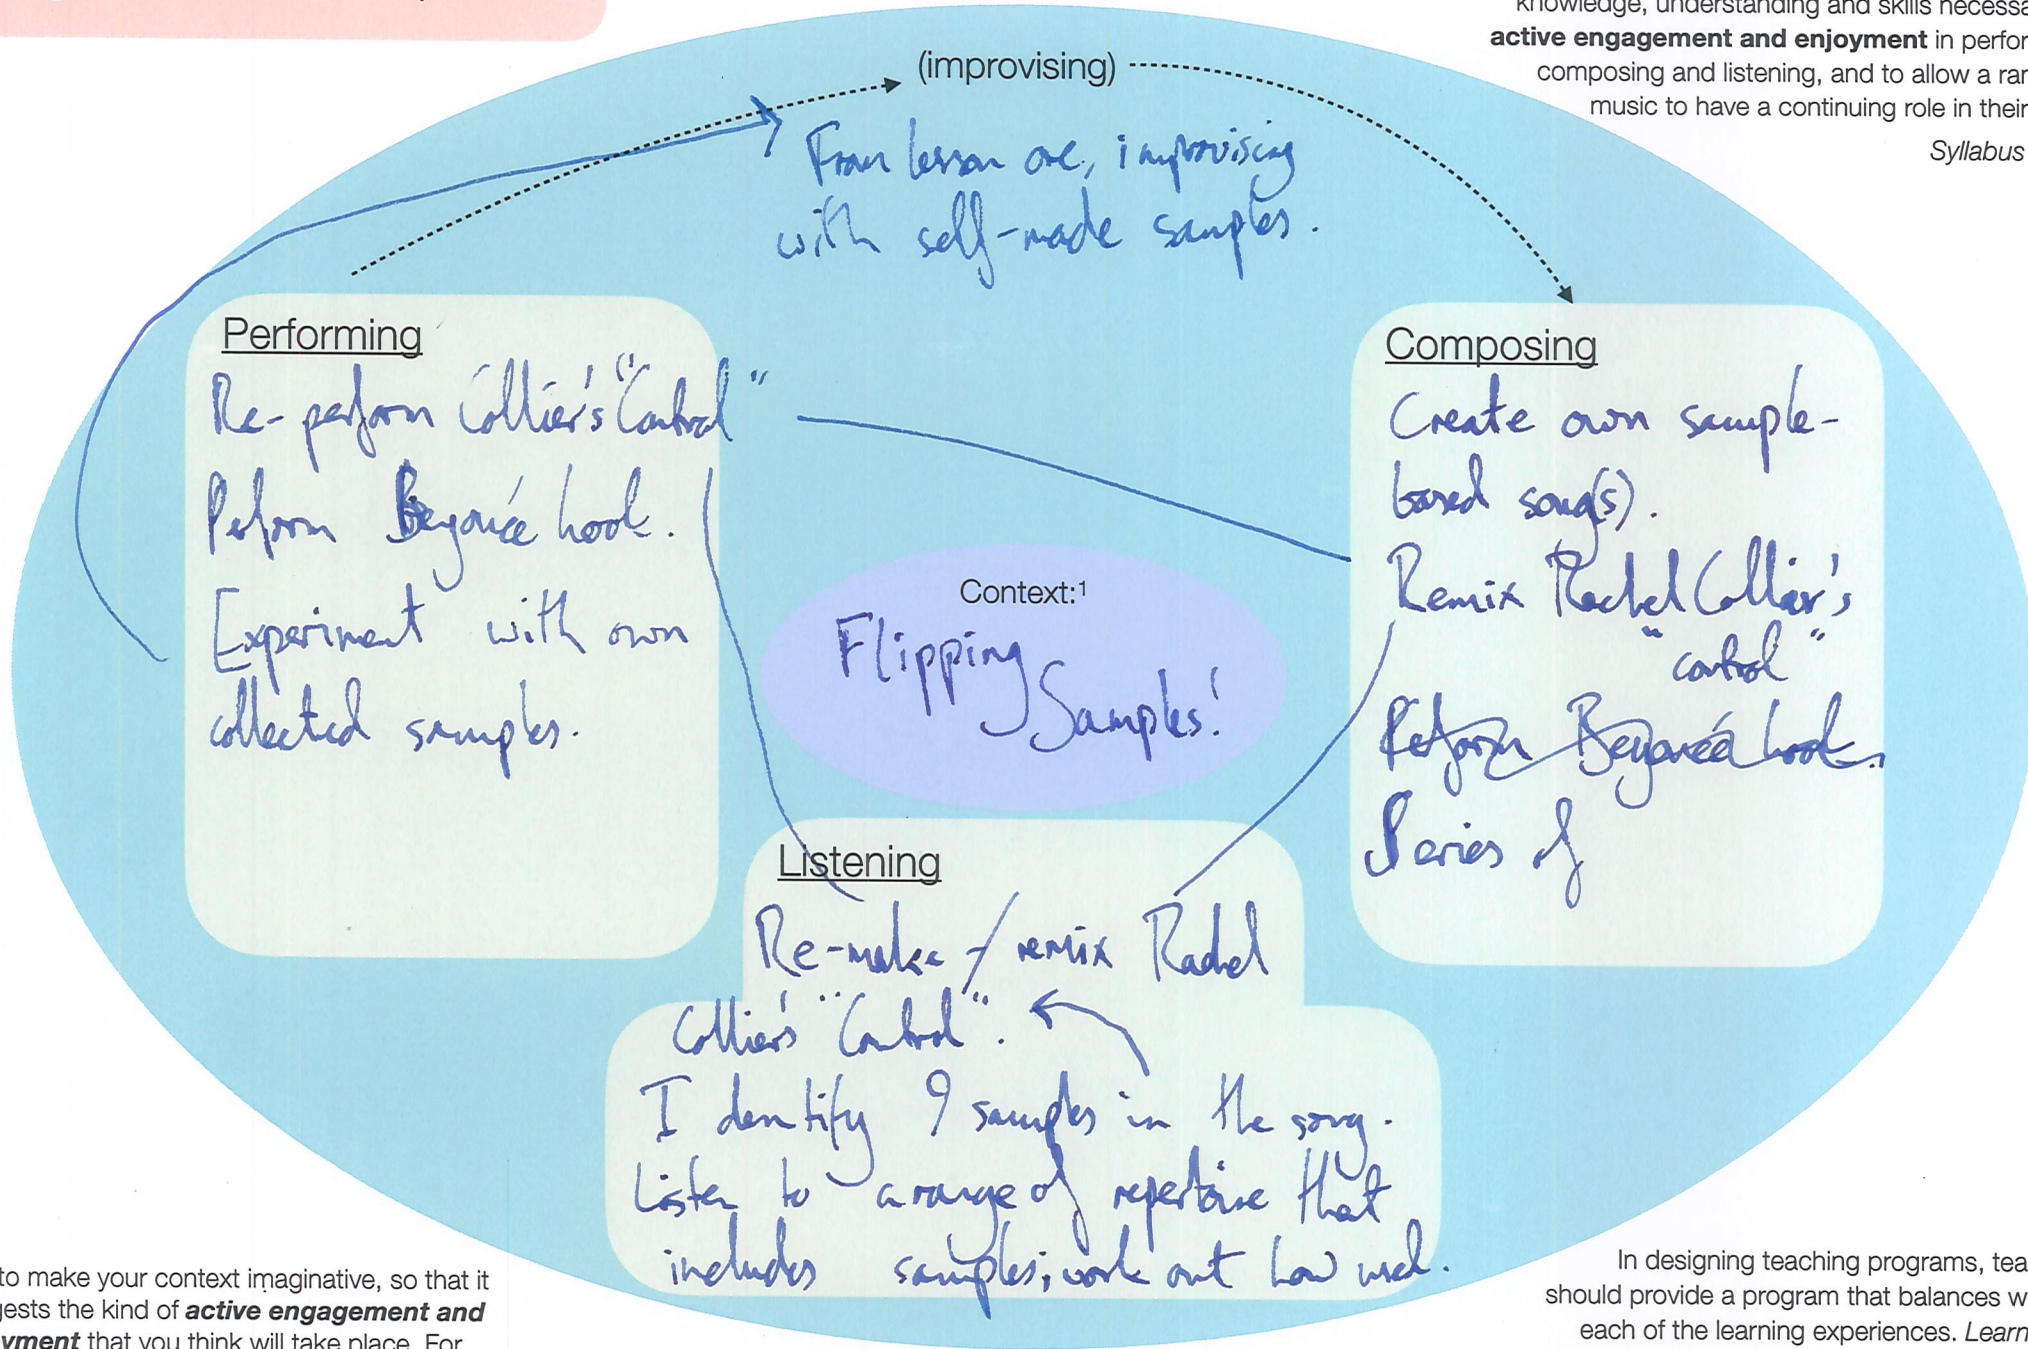 knowledge, understanding and skills necessa
active engagement and enjoyment in perfor
composing and listening, and to allow a ran
music to have a continuing role in their
Syllabus
(improvising)
From lesson one, improvising
with self-made samples.
Performing
Re-perform Collier's "Control"
Peform Beyoncé hook.
Experiment with own
collected samples.
Composing
Create own sample-
based song(s).
Remix Rachel Collier's
"control"
Peform Beyoncé hook.
Series of
Context:¹
Flipping
Samples!
Listening
Re-make / remix Rachel
Collier's "Control".
Identify 9 samples in the song.
Listen to a range of repertoire that
includes samples; work out how used.
to make your context imaginative, so that it
gests the kind of active engagement and
yment that you think will take place. For
In designing teaching programs, tea
should provide a program that balances w
each of the learning experiences. Learn